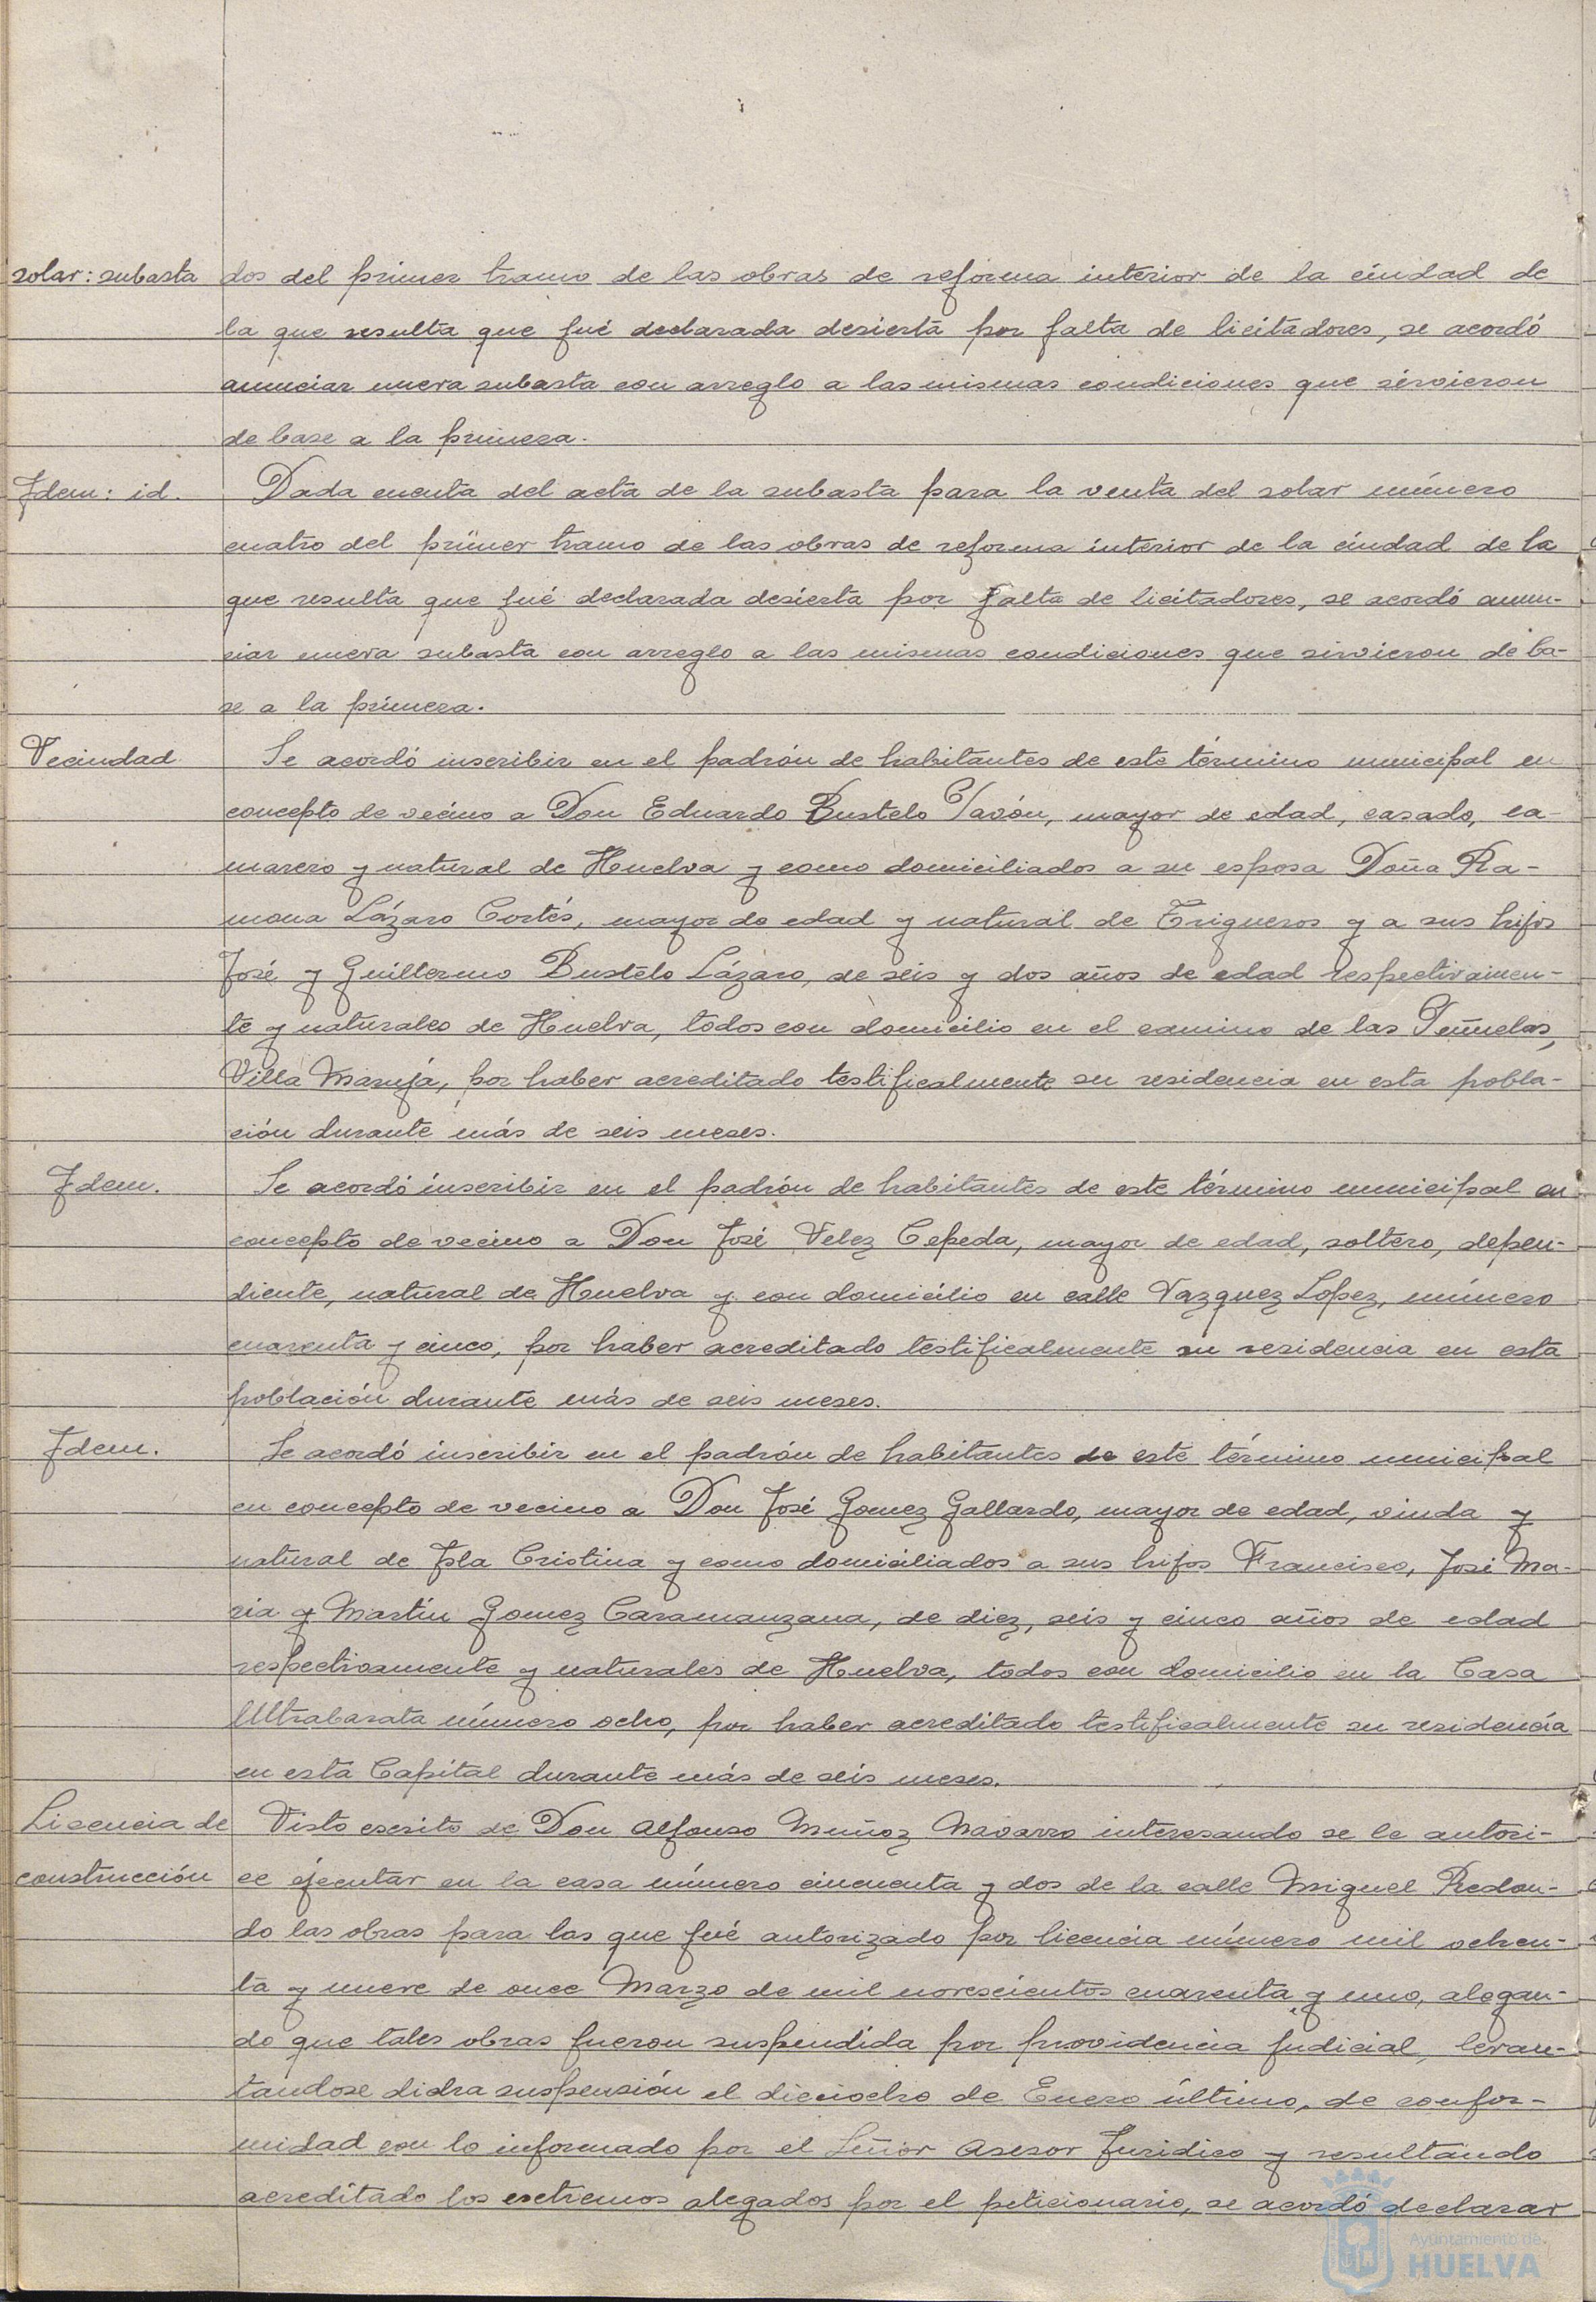 solar: subasta dos del primer tramo de las obras de reforma interior de la ciudad de
la que resulta que fué declarada desierta por falta de licitadores, se acordó
anunciar nueva subasta con arreglo a las mismas condiciones que sirvieron
de base a la primera.
Idem: id. Dada cuenta del acta de la subasta para la venta del solar número
cuatro del primer tramo de las obras de reforma interior de la ciudad de la
que resulta que fué declarada desierta por falta de licitadores, se acordó anun-
ciar nueva subasta con arreglo a las mismas condiciones que sirvieron de ba-
se a la primera.
Vecindad Se acordó inscribir en el padrón de habitantes de este término municipal en
concepto de vecino a Don Eduardo Bustelo Pavón, mayor de edad, casado, ca-
marero y natural de Huelva y como domiciliados a su esposa Doña Ra-
mona Lázaro Cortés, mayor de edad y natural de Trigueros y a sus hijos
José y Guillermo Bustelo Lázaro, de seis y dos años de edad respectivamen-
te y naturales de Huelva, todos con domicilio en el camino de las
Villa Maruja, por haber acreditado testificalmente su residencia en esta pobla-
ción durante más de seis meses.
Idem. Se acordó inscribir en el padrón de habitantes de este término municipal en
concepto de vecino a Don José Velez Cepeda, mayor de edad, soltero, depen-
diente, natural de Huelva y con domicilio en calle Vazquez Lopez, número
cuarenta y cinco, por haber acreditado testificalmente su residencia en esta
población durante más de seis meses.
Idem. Se acordó inscribir en el padrón de habitantes de este término municipal
en concepto de vecino a Don José Gomez Gallardo, mayor de edad, viuda y
natural de Isla Cristina y como domiciliados a sus hijos Francisco, José Ma-
ria y Martín Gomez Caramanzana, de diez, seis y cinco años de edad
respectivamente y naturales de Huelva, todos con domicilio en la Casa
Ultrabarata número ocho, por haber acreditado testificalmente su residencia
en esta Capital durante más de seis meses.
Licencia de Visto escrito de Don Alfonso Muñoz Navarro interesando se le autori-
construcción ce ejecutar en la casa número cincuenta y dos de la calle Miguel Redon-
do las obras para las que fué autorizado por licencia número mil ochen-
ta y nueve de once Marzo de mil novescientos cuarenta y uno, alegan-
do que tales obras fueron suspendida por providencia judicial, levan-
tandose dicha suspensión el dieciocho de Enero último, de confor-
midad con lo informado por el Señor Asesor Juridico y resultando
acreditado los extremos alegados por el peticionario, se acordó declarar
Ayuntamiento de
HUELVA